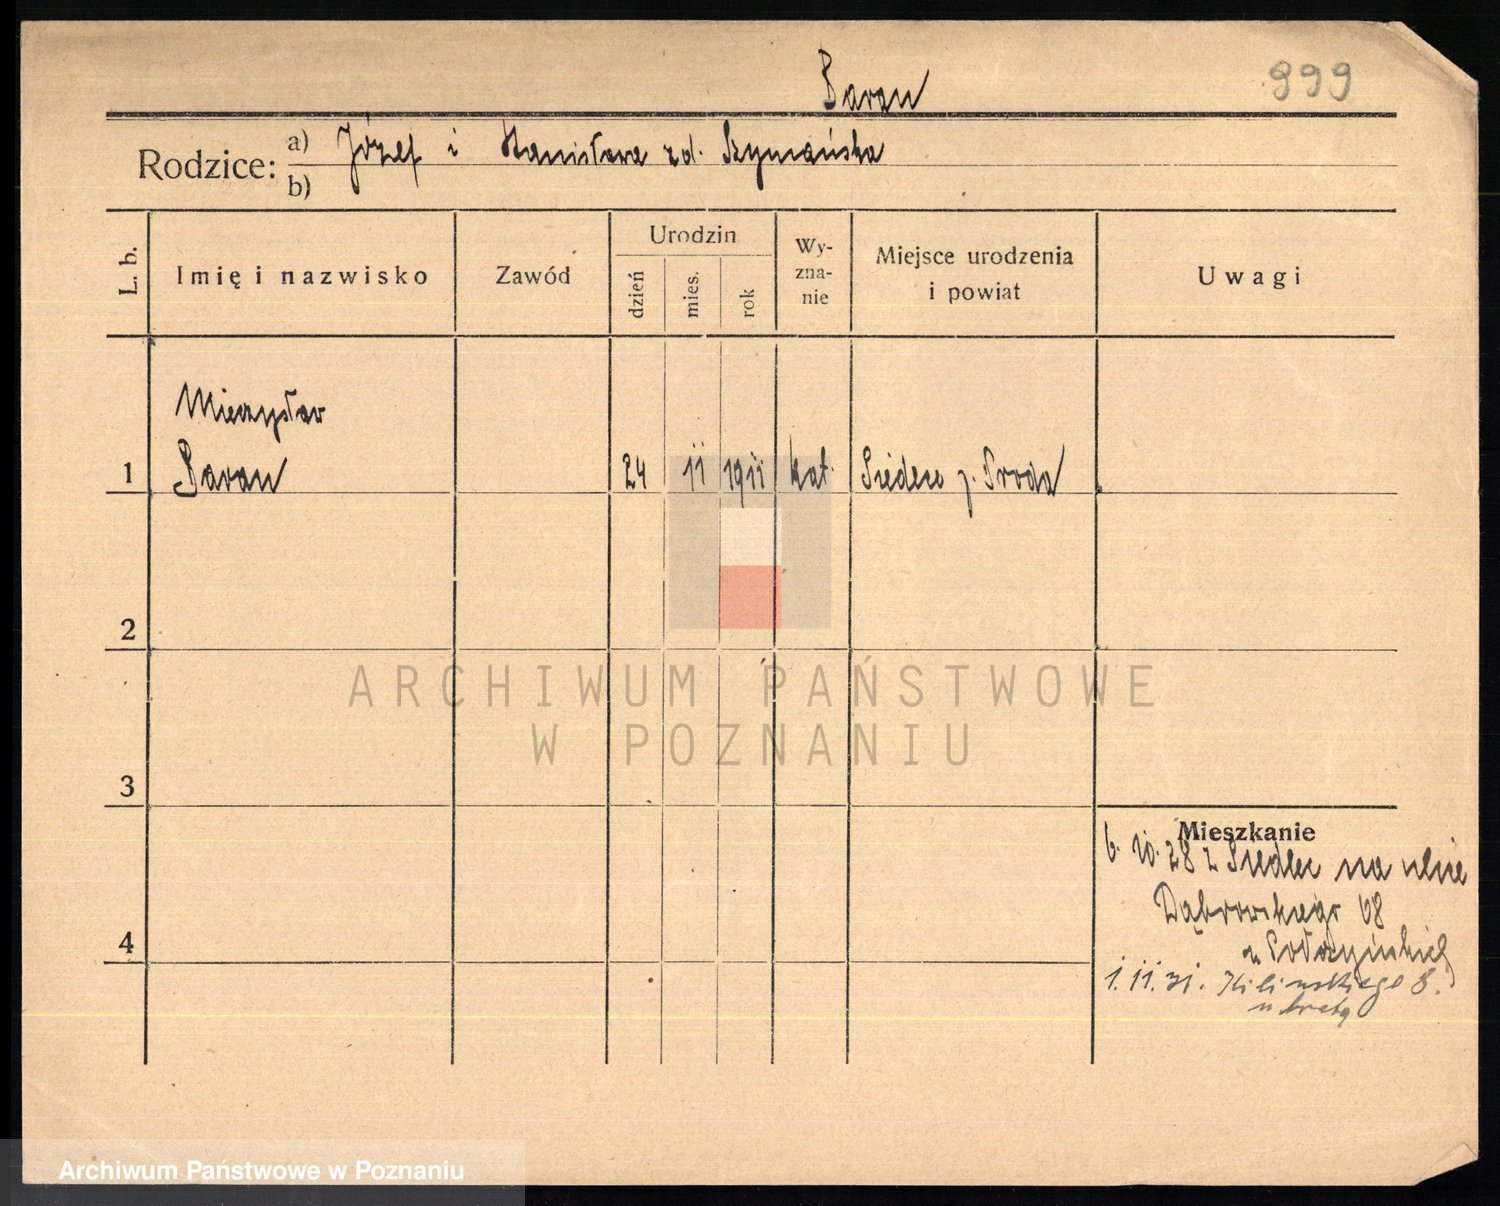 Baran
999
Rodzice: a) Józef i Stanisława z d. Szymańska
b)
L. b.
Imię i nazwisko
Zawód
Urodzin
dzień
mies.
rok
Wy-
zna-
nie
Miejsce urodzenia
i powiat
Uwagi
Mieczysław
1 Baran 24 11 1911 kat. Siedlec p. Środa
2
3
4
Mieszkanie
6. 10. 28 z Siedlec na ulicę
Dąbrowskiego 68
u
1. 11. 31. Kilinskiego 8.
u brata
ARCHIWUM PAŃSTWOWE
W POZNANIU
Archiwum Państwowe w Poznaniu